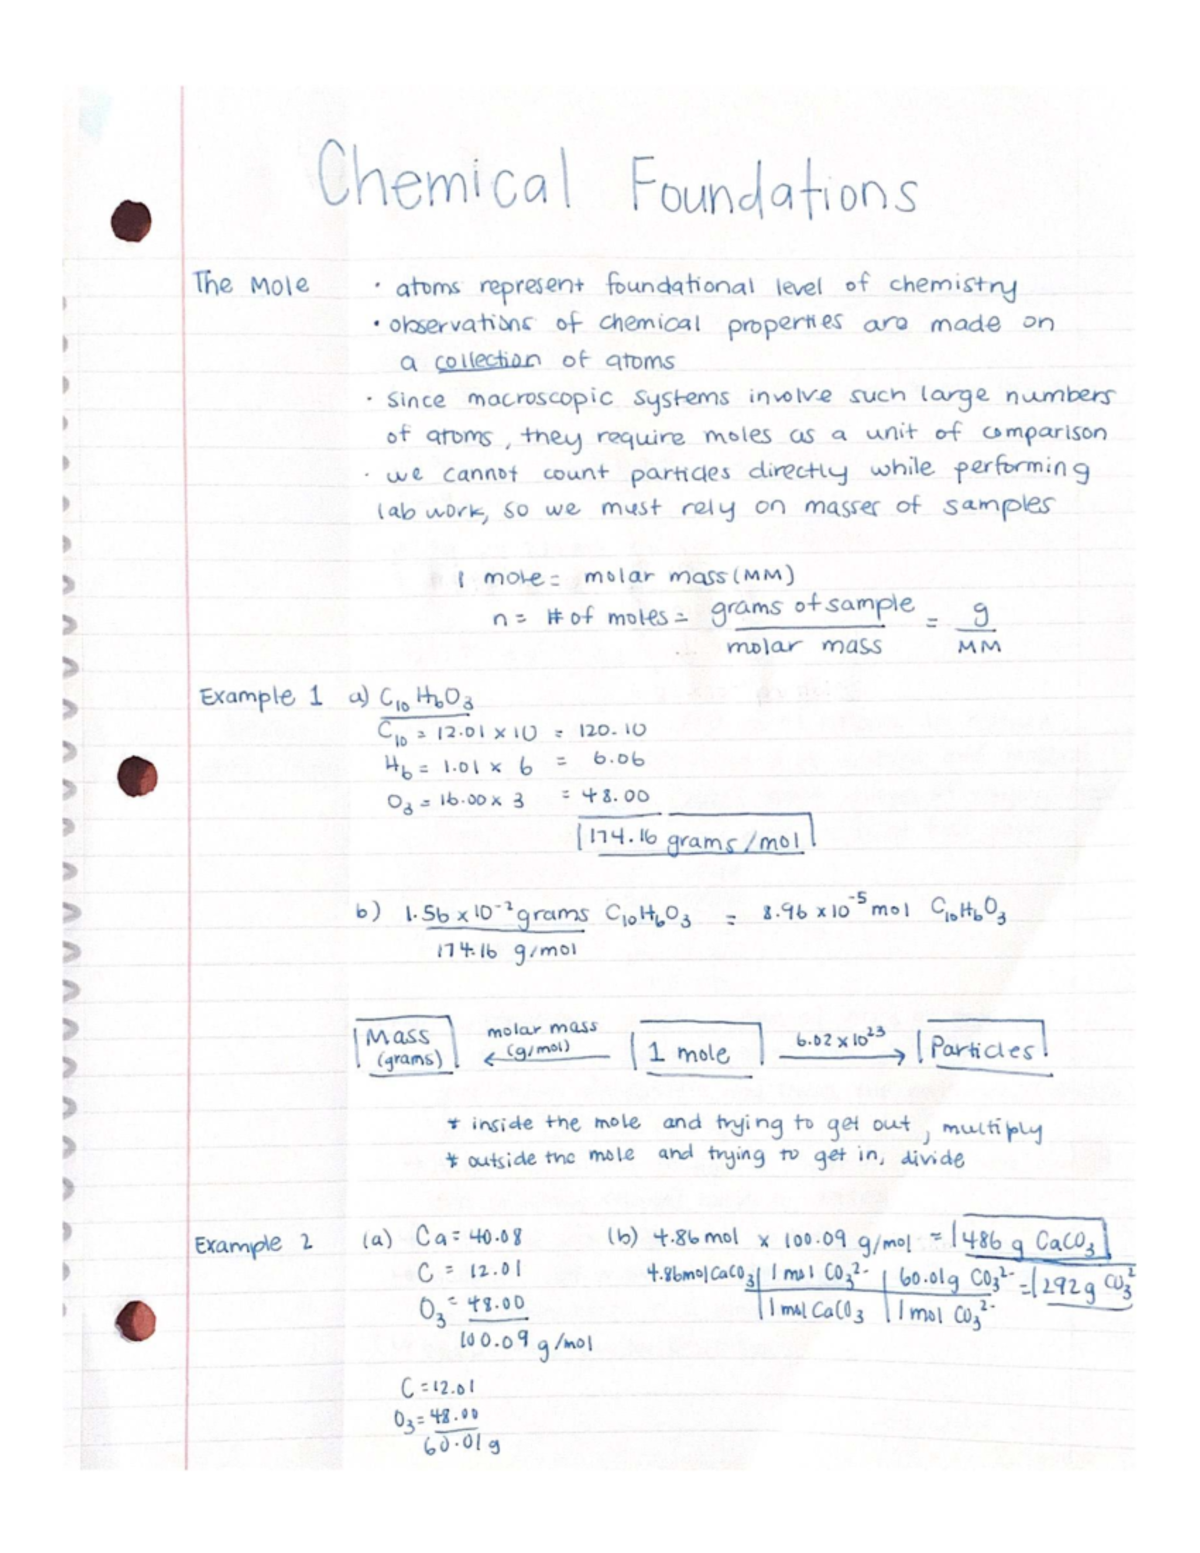 Chemical Foundations
The Mole
· atoms represent foundational level of chemistry
· observations of chemical properties are made on
a collection of atoms
· since macroscopic systems involve such large numbers
of atoms, they require moles as a unit of comparison
· we cannot count particles directly while performing
lab work, so we must rely on masses of samples
1 mole = molar mass (MM)
n = # of moles = grams of sample / molar mass = g / MM
Example 1 a) C₁₀H₆O₃
C₁₀ = 12.01 x 10 = 120.10
H₆ = 1.01 x 6 = 6.06
O₃ = 16.00 x 3 = 48.00
174.16 grams/mol
b) 1.56 x 10⁻² grams C₁₀H₆O₃ = 8.96 x 10⁻⁵ mol C₁₀H₆O₃
174.16 g/mol
Mass (grams) ← molar mass (g/mol) 1 mole 6.02 x 10²³ → Particles
* inside the mole and trying to get out, multiply
* outside the mole and trying to get in, divide
Example 2 (a) Ca = 40.08
C = 12.01
O₃ = 48.00
100.09 g/mol
C = 12.01
O₃ = 48.00
60.01 g
(b) 4.86 mol x 100.09 g/mol = 486 g CaCO₃
4.86 mol CaCO₃ | 1 mol CO₃²⁻ | 60.01g CO₃²⁻ = 292 g CO₃²⁻
| 1 mol CaCO₃ | 1 mol CO₃²⁻